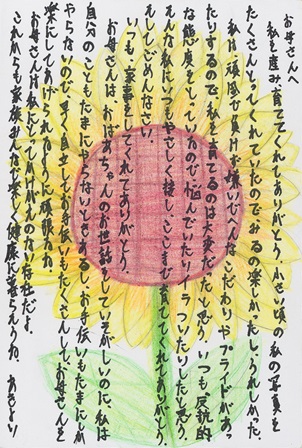 お母さんへ
私を産み育ててくれてありがとう。小い頃の私の写真を
たくさんとってくれていたのでみるの楽しかったしうれしかった。
私は頑固で負けず嫌いでへんなこだわりやプライドがあっ
たりするので私を育てるのは大変だったと思う。いつも反抗的
な態度をとっているので悩んでいたりイライラしていたりしたと思う。
そんな私にいつもやさしく接し、ここまで育ててくれてありがとう。
そしてごめんなさい。
いつも家事をしてくれてありがとう。
お母さんは、おばあちゃんのお世話をしていそがしいのに、私は
自分のこともたまにしないときある お手伝いもたまにしか
やらないので、早く自立してお手伝いもたくさんして、お母さんを
楽にしてあげられるように頑張るね。
お母さんは私にとってかけがえのない存在だよ。
これからも家族みんなで楽しく健康に暮らそうね。 あきより